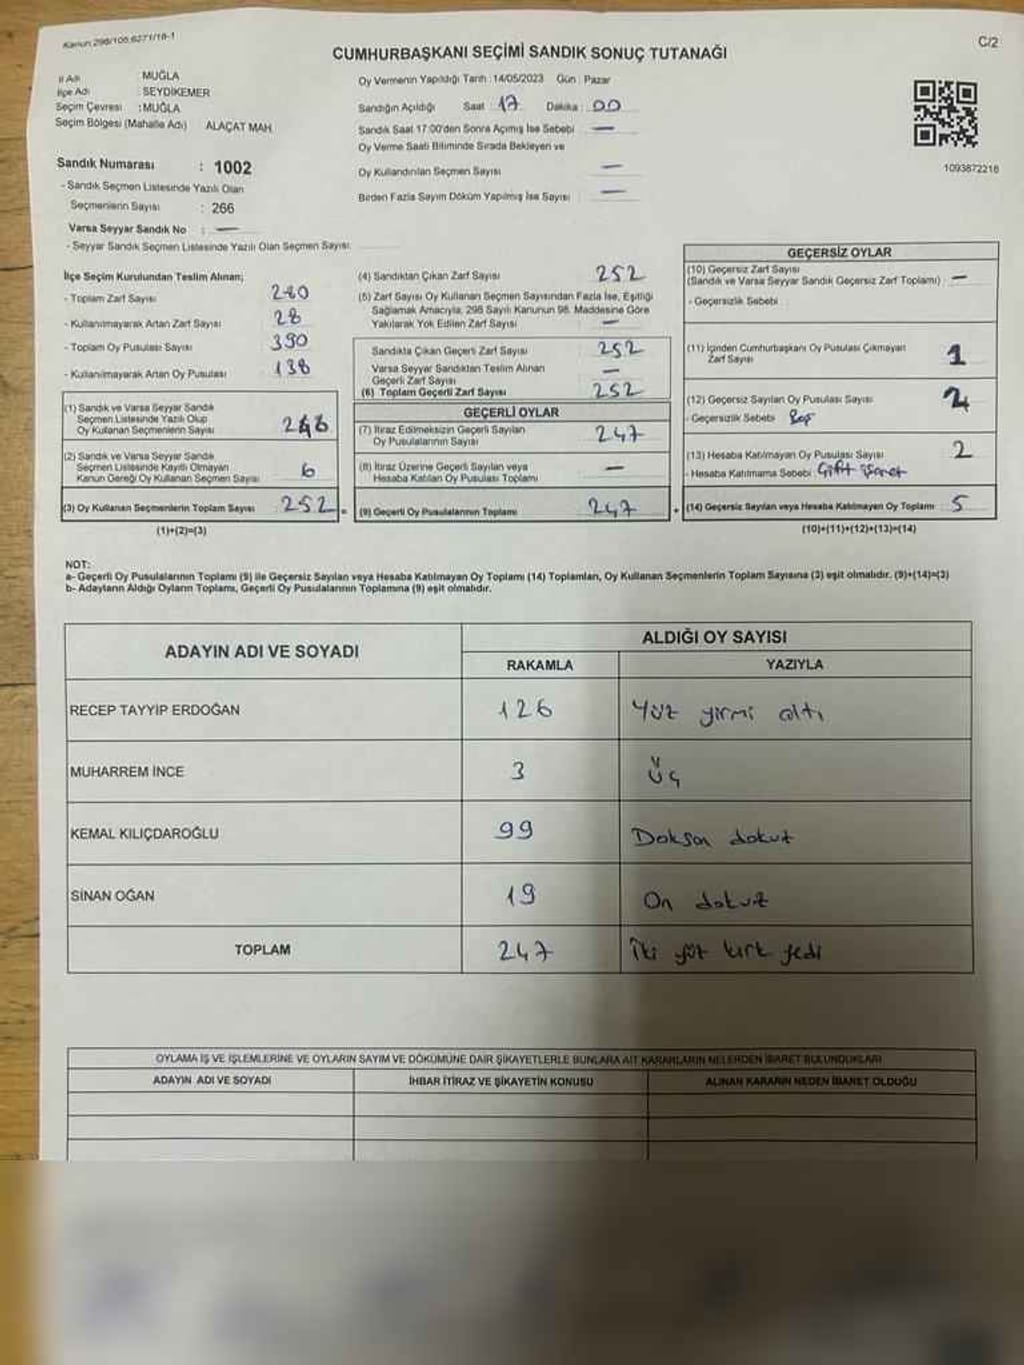 Kanun:298/105,6271/18-1
C/2
CUMHURBAŞKANI SEÇİMİ SANDIK SONUÇ TUTANAĞI
İl Adı MUĞLA
İlçe Adı SEYDİKEMER
Seçim Çevresi :MUĞLA
Seçim Bölgesi (Mahalle Adı) ALAÇAT MAH.
Sandık Numarası : 1002
- Sandık Seçmen Listesinde Yazılı Olan
Seçmenlerin Sayısı : 266
Varsa Seyyar Sandık No : —
- Seyyar Sandık Seçmen Listesinde Yazılı Olan Seçmen Sayısı:
Oy Vermenin Yapıldığı Tarih :14/05/2023 Gün : Pazar
Sandığın Açıldığı Saat : 17 Dakika : 00
Sandık Saat 17:00'den Sonra Açımış İse Sebebi : —
Oy Verme Saati Bitiminde Sırada Bekleyen ve
Oy Kullandırılan Seçmen Sayısı : —
Birden Fazla Sayım Döküm Yapılmış İse Sayısı : —
1093872218
İlçe Seçim Kurulundan Teslim Alınan;
- Toplam Zarf Sayısı : 280
- Kullanılmayarak Artan Zarf Sayısı : 28
- Toplam Oy Pusulası Sayısı : 390
- Kullanılmayarak Artan Oy Pusulası : 138
(1) Sandık ve Varsa Seyyar Sandık
Seçmen Listesinde Yazılı Olup
Oy Kullanan Seçmenlerin Sayısı : 246
(2) Sandık ve Varsa Seyyar Sandık
Seçmen Listesinde Kayıtlı Olmayan
Kanun Gereği Oy Kullanan Seçmen Sayısı : 6
(3) Oy Kullanan Seçmenlerin Toplam Sayısı : 252
(1)+(2)=(3)
(4) Sandıktan Çıkan Zarf Sayısı : 252
(5) Zarf Sayısı Oy Kullanan Seçmen Sayısından Fazla İse, Eşitliği
Sağlamak Amacıyla, 298 Sayılı Kanunun 98. Maddesine Göre
Yakılarak Yok Edilen Zarf Sayısı : —
Sandıkta Çıkan Geçerli Zarf Sayısı : 252
Varsa Seyyar Sandıktan Teslim Alınan
Geçerli Zarf Sayısı : —
(6) Toplam Geçerli Zarf Sayısı : 252
GEÇERLİ OYLAR
(7) İtiraz Edilmeksizin Geçerli Sayılan
Oy Pusulalarının Sayısı : 247
(8) İtiraz Üzerine Geçerli Sayılan veya
Hesaba Katılan Oy Pusulası Toplamı : —
= (9) Geçerli Oy Pusulalarının Toplamı : 247
GEÇERSİZ OYLAR
(10) Geçersiz Zarf Sayısı
(Sandık ve Varsa Seyyar Sandık Geçersiz Zarf Toplamı) : —
- Geçersizlik Sebebi :
(11) İçinden Cumhurbaşkanı Oy Pusulası Çıkmayan
Zarf Sayısı : 1
(12) Geçersiz Sayılan Oy Pusulası Sayısı : 2
- Geçersizlik Sebebi : Boş
(13) Hesaba Katılmayan Oy Pusulası Sayısı : 2
- Hesaba Katılmama Sebebi : Çift işaret
+ (14) Geçersiz Sayılan veya Hesaba Katılmayan Oy Toplamı : 5
(10)+(11)+(12)+(13)=(14)
NOT:
a- Geçerli Oy Pusulalarının Toplamı (9) ile Geçersiz Sayılan veya Hesaba Katılmayan Oy Toplamı (14) Toplamları, Oy Kullanan Seçmenlerin Toplam Sayısına (3) eşit olmalıdır. (9)+(14)=(3)
b- Adayların Aldığı Oyların Toplamı, Geçerli Oy Pusulalarının Toplamına (9) eşit olmalıdır.
ADAYIN ADI VE SOYADI ALDIĞI OY SAYISI
RAKAMLA YAZIYLA
RECEP TAYYİP ERDOĞAN 126 Yüz yirmi altı
MUHARREM İNCE 3 Üç
KEMAL KILIÇDAROĞLU 99 Doksan dokuz
SİNAN OĞAN 19 On dokuz
TOPLAM 247 İki yüz kırk yedi
OYLAMA İŞ VE İŞLEMLERİNE VE OYLARIN SAYIM VE DÖKÜMÜNE DAİR ŞİKAYETLERLE BUNLARA AİT KARARLARIN NELERDEN İBARET BULUNDUKLARI
ADAYIN ADI VE SOYADI İHBAR İTİRAZ VE ŞİKAYETİN KONUSU ALINAN KARARIN NEDEN İBARET OLDUĞU